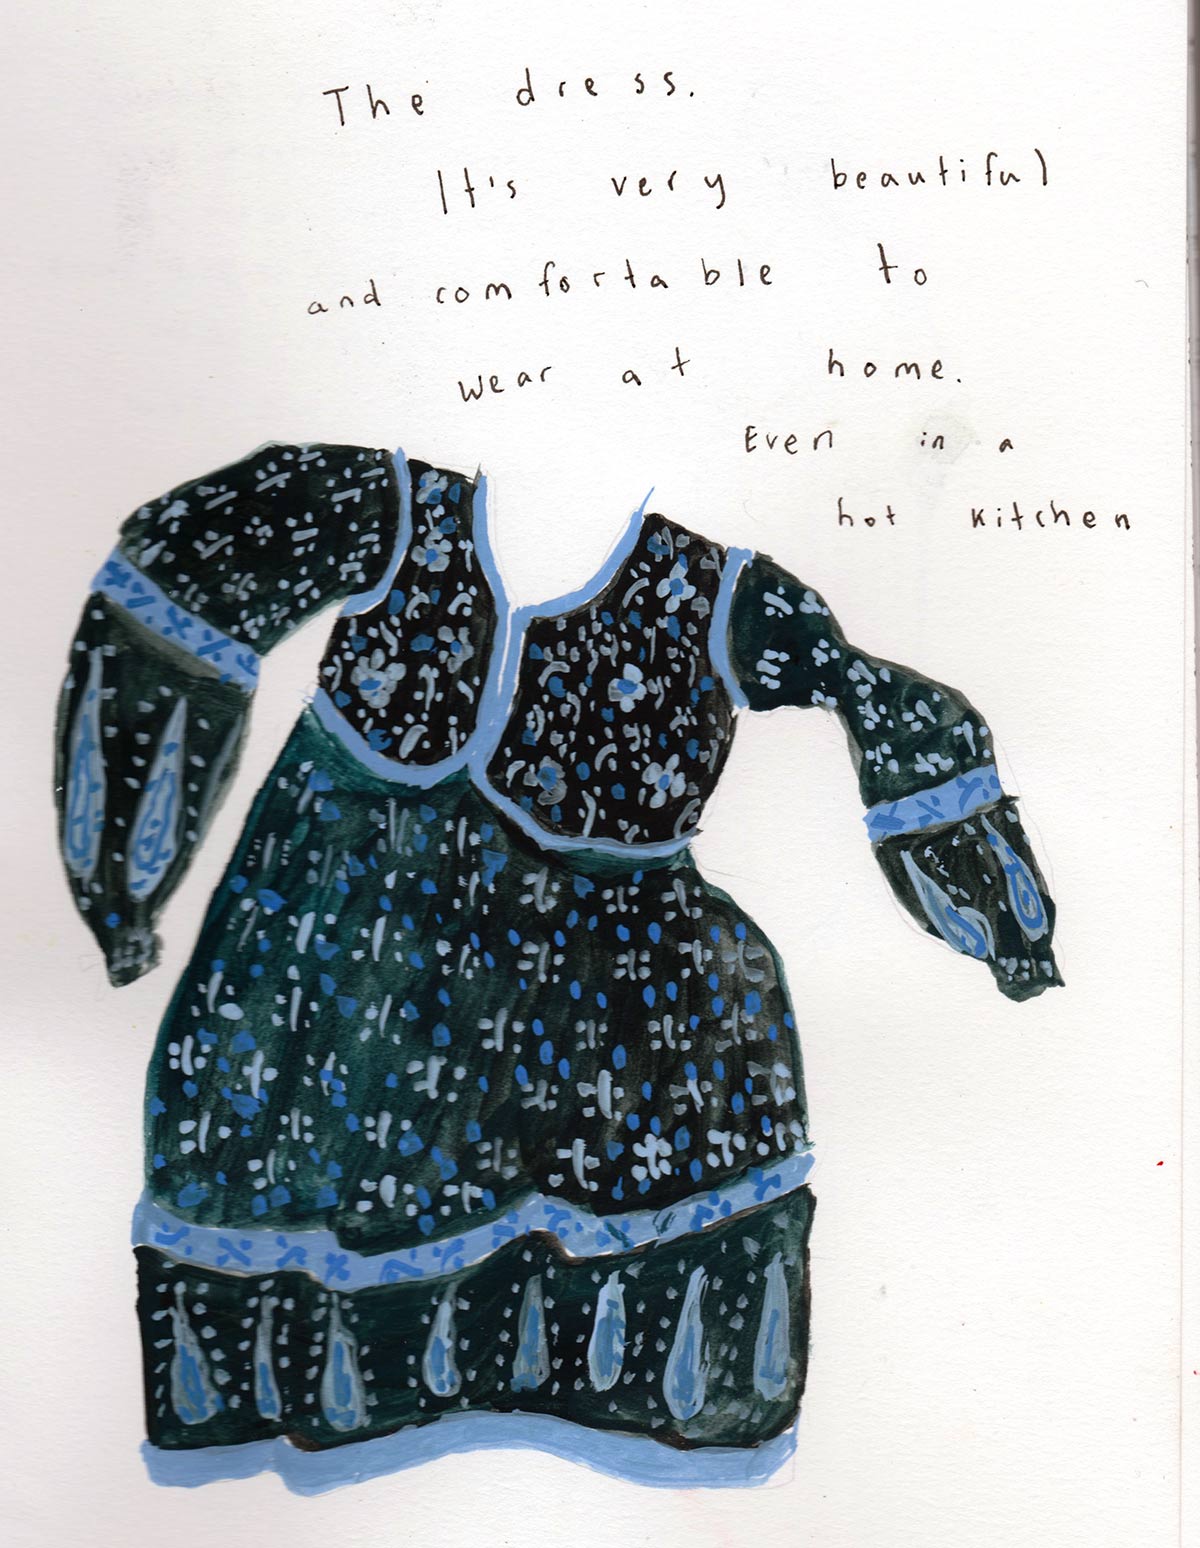 The dress.
It's very beautiful
and comfortable to
wear at home.
Even in a
hot kitchen